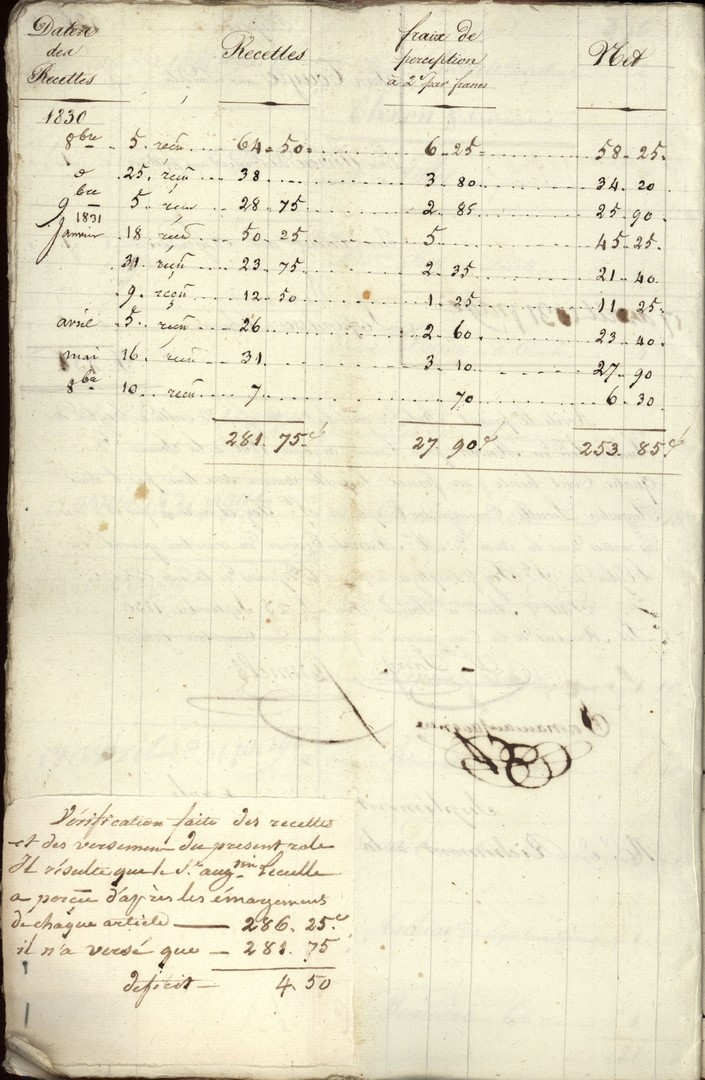 Dates des Recettes
Recettes
fraix de perception à 2s par francs
Net
1830
8bre 5. reçu 64. 50. 6 25 58. 25.
d 25. reçu 38 3 80. 34. 20
9bre 5. reçu 28 75 2 85 25 90
1831
Janvier 18 reçu 50 25 5 45 25.
31. reçu 23. 75 2 35 21 40
9. reçu 12 50 1 25 11 25
avril 5. reçu 26 2 60 23 40
mai 16 reçu 31 3 10 27 90
8bre 10 reçu 7 70 6 30
281 75c 27 90c 253. 85c
Vérification faite des recettes
et des versemen du present role
Il résulte que le Sr augtin
a percue d'après les émargemens
de chaque article — 286. 25c
il n'a versé que — 281. 75
deficit — 4. 50